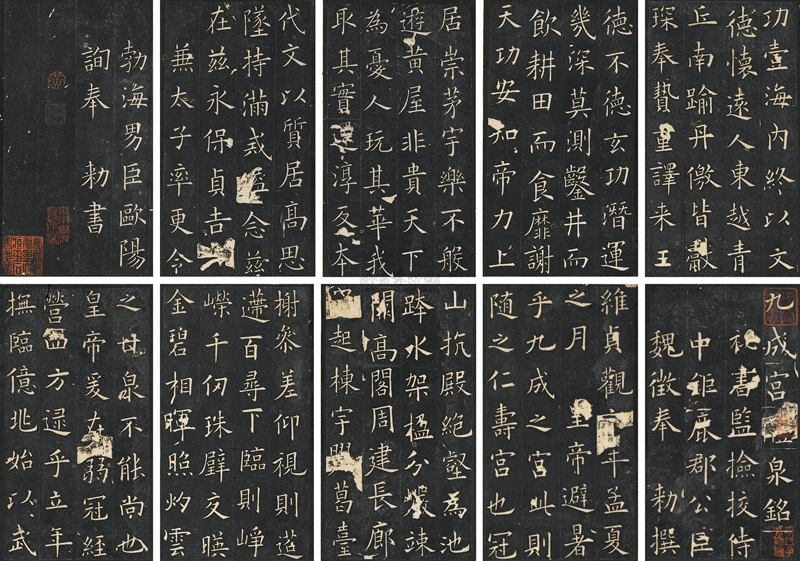 九成宮泉銘
秘書監檢挍侍
中鉅鹿郡公臣
魏徵奉 勑撰
維貞觀年孟夏
之月 皇帝避暑
乎九成之宮此則
隨之仁壽宮也冠
山抗殿絶壑為池
跨水架楹分巖竦
闕高閣周建長廊
起棟宇膠葛臺
榭參差仰視則迢
遰百尋下臨則崢
嶸千仞珠璧交暎
金碧相暉照灼雲
之甘泉不能尚也
皇帝爰在弱冠經
營四方逮乎立年
撫臨億兆始以武
功壹海內終以文
德懷遠人東越青
丘南踰丹儌皆獻
琛奉贄重譯來王
德不德玄功潛運
幾深莫測鑿井而
飲耕田而食靡謝
天功安知帝力上
居崇茅宇樂不般
遊黃屋非貴天下
為憂人玩其華我
取其實還淳反本
代文以質居高思
墜持滿戒溢念茲
在茲永保貞吉
兼太子率更令
勃海男臣歐陽
詢奉 勑書